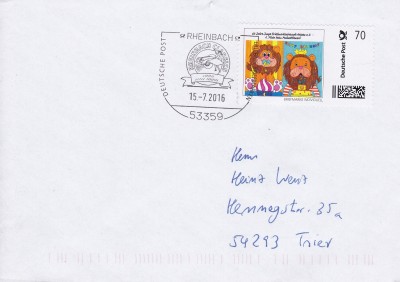 RHEINBACH
DEUTSCHE POST
15.-7.2016
53359
Deutsche Post
70
BRIEFMARKE INDIVIDUELL
Herrn
Heinz Wenz
Hemmegstr. 35a
54293 Trier